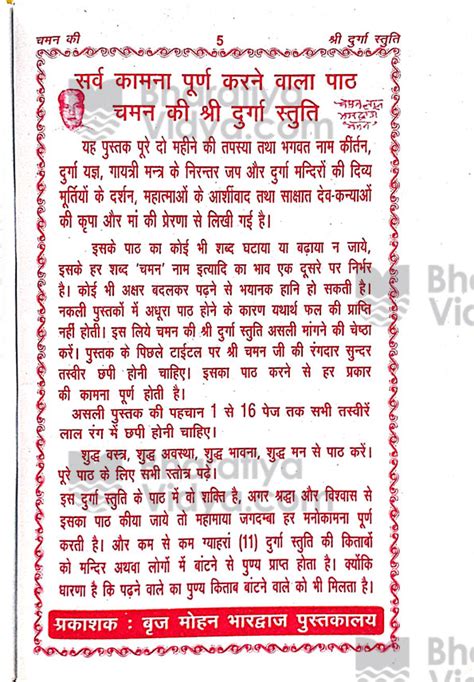 चमन की 5 श्री दुर्गा स्तुति
सर्व कामना पूर्ण करने वाला पाठ
चमन की श्री दुर्गा स्तुति
चमन लाल
भारद्वाज
चमन
यह पुस्तक पूरे दो महीने की तपस्या तथा भगवत नाम कीर्तन,
दुर्गा यज्ञ, गायत्री मन्त्र के निरन्तर जप और दुर्गा मन्दिरों की दिव्य
मूर्तियों के दर्शन, महात्माओं के आर्शीवाद तथा साक्षात देव-कन्याओं
की कृपा और मां की प्रेरणा से लिखी गई है।
इसके पाठ का कोई भी शब्द घटाया या बढ़ाया न जाये,
इसके हर शब्द 'चमन' नाम इत्यादि का भाव एक दूसरे पर निर्भर
है। कोई भी अक्षर बदलकर पढ़ने से भयानक हानि हो सकती है।
नकली पुस्तकों में अधूरा पाठ होने के कारण यथार्थ फल की प्राप्ति
नहीं होती। इस लिये चमन की श्री दुर्गा स्तुति असली मांगने की चेष्ठा
करें। पुस्तक के पिछले टाईटल पर श्री चमन जी की रंगदार सुन्दर
तस्वीर छपी होनी चाहिए। इसका पाठ करने से हर प्रकार
की कामना पूर्ण होती है।
असली पुस्तक की पहचान 1 से 16 पेज तक सभी तस्वीरें
लाल रंग में छपी होनी चाहिए।
शुद्ध वस्त्र, शुद्ध अवस्था, शुद्ध भावना, शुद्ध मन से पाठ करें।
पूरे पाठ के लिए सभी स्तोत्र पढ़ें।
इस दुर्गा स्तुति के पाठ में वो शक्ति है, अगर श्रद्धा और विश्वास से
इसका पाठ कीया जाये तो महामाया जगदम्बा हर मनोकामना पूर्ण
करती है। और कम से कम ग्याहरां (11) दुर्गा स्तुति की किताबों
को मन्दिर अथवा लोगों में बांटने से पुण्य प्राप्त होता है। क्योंकि
धारणा है कि पढ़ने वाले का पुण्य किताब बांटने वाले को भी मिलता है।
प्रकाशक : बृज मोहन भारद्वाज पुस्तकालय
Bharatiya
Vidya.com
Bharatiya
Vidya.com
Bha
Vidya
Bha